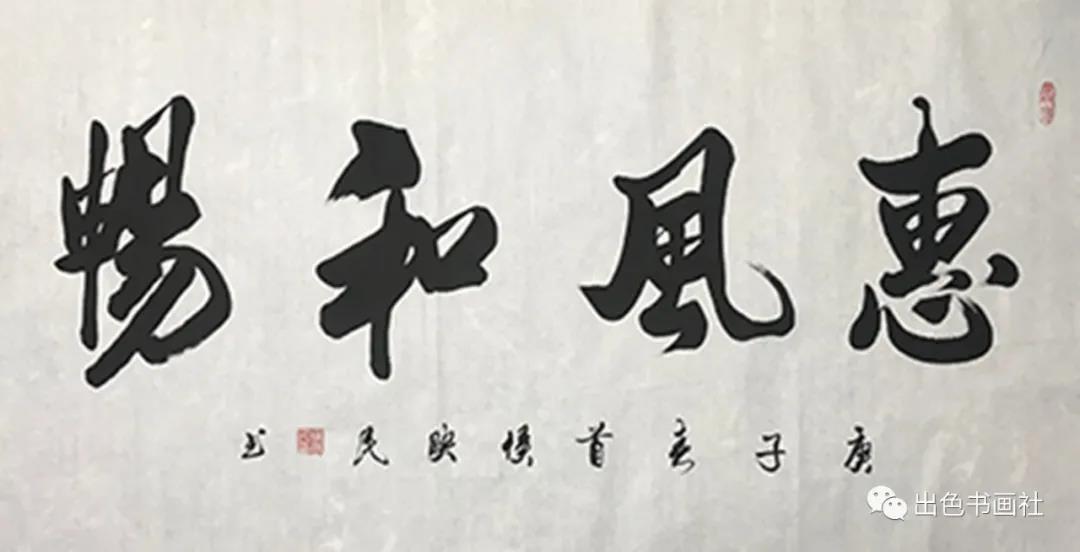 惠風和暢
庚子首侯映民书
出色书画社